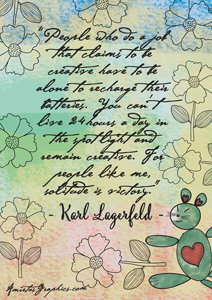 "People who do a job
that claims to be
creative have to be
alone to recharge their
batteries. You can't
live 24 hours a day in
the spotlight and
remain creative. For
people like me,
solitude is victory."
- Karl Lagerfeld -
AmietasGraphics.com